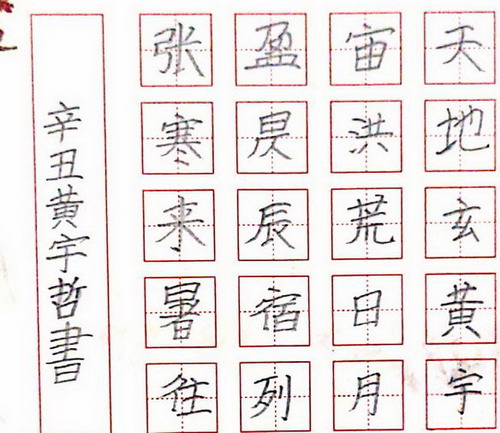 天地玄黄宇
宙洪荒日月
盈昃辰宿列
张寒来暑往
辛丑黄宇哲書